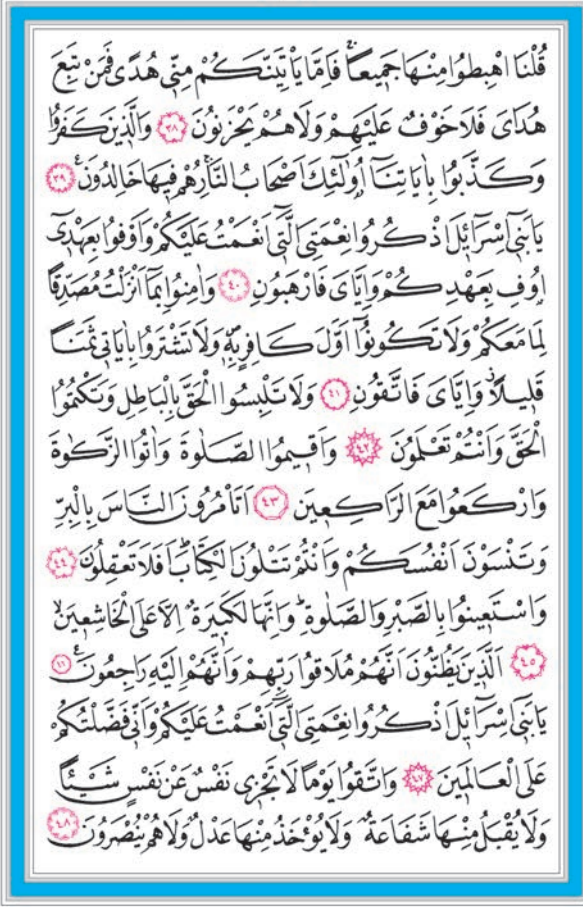 قُلْنَا اهْبِطُوا مِنْهَا جَمٖيعاًۚ فَاِمَّا يَاْتِيَنَّكُمْ مِنّٖى هُدًى فَمَنْ تَبِعَ
هُدَاىَ فَلَا خَوْفٌ عَلَيْهِمْ وَلَا هُمْ يَحْزَنُونَ ﴿٣٨﴾ وَالَّذٖينَ كَفَرُوا
وَكَذَّبُوا بِاٰيَاتِنَٓا اُو۬لٰٓئِكَ اَصْحَابُ النَّارِۚ هُمْ فٖيهَا خَالِدُونَ۟ ﴿٣٩﴾
يَا بَنٖٓى اِسْرَٓائٖلَ اذْكُرُوا نِعْمَتِىَ الَّتٖٓى اَنْعَمْتُ عَلَيْكُمْ وَاَوْفُوا بِعَهْدٖٓى
اُو۫فِ بِعَهْدِكُمْ وَاِيَّاىَ فَارْهَبُونِ ﴿٤٠﴾ وَاٰمِنُوا بِمَٓا اَنْزَلْتُ مُصَدِّقاً
لِمَا مَعَكُمْ وَلَا تَكُونُٓوا اَوَّلَ كَافِرٍ بِهٖۖ وَلَا تَشْتَرُوا بِاٰيَاتٖى ثَمَناً
قَلٖيلاًۘ وَاِيَّاىَ فَاتَّقُونِ ﴿٤١﴾ وَلَا تَلْبِسُوا الْحَقَّ بِالْبَاطِلِ وَتَكْتُمُوا
الْحَقَّ وَاَنْتُمْ تَعْلَمُونَ ﴿٤٢﴾ وَاَقٖيمُوا الصَّلٰوةَ وَاٰتُوا الزَّكٰوةَ
وَارْكَعُوا مَعَ الرَّاكِعٖينَ ﴿٤٣﴾ اَتَاْمُرُونَ النَّاسَ بِالْبِرِّ
وَتَنْسَوْنَ اَنْفُسَكُمْ وَاَنْتُمْ تَتْلُونَ الْكِتَابَۜ اَفَلَا تَعْقِلُونَ ﴿٤٤﴾
وَاسْتَعٖينُوا بِالصَّبْرِ وَالصَّلٰوةِۜ وَاِنَّهَا لَكَبٖيرَةٌ اِلَّا عَلَى الْخَاشِعٖينَۙ
﴿٤٥﴾ اَلَّذٖينَ يَظُنُّونَ اَنَّهُمْ مُلَاقُوا رَبِّهِمْ وَاَنَّهُمْ اِلَيْهِ رَاجِعُونَ۟ ﴿٤٦﴾
يَا بَنٖٓى اِسْرَٓائٖلَ اذْكُرُوا نِعْمَتِىَ الَّتٖٓى اَنْعَمْتُ عَلَيْكُمْ وَاَنّٖى فَضَّلْتُكُمْ
عَلَى الْعَالَمٖينَ ﴿٤٧﴾ وَاتَّقُوا يَوْماً لَا تَجْزٖى نَفْسٌ عَنْ نَفْسٍ شَيْـٔاً
وَلَا يُقْبَلُ مِنْهَا شَفَاعَةٌ وَلَا يُؤْخَذُ مِنْهَا عَدْلٌ وَلَا هُمْ يُنْصَرُونَ ﴿٤٨﴾